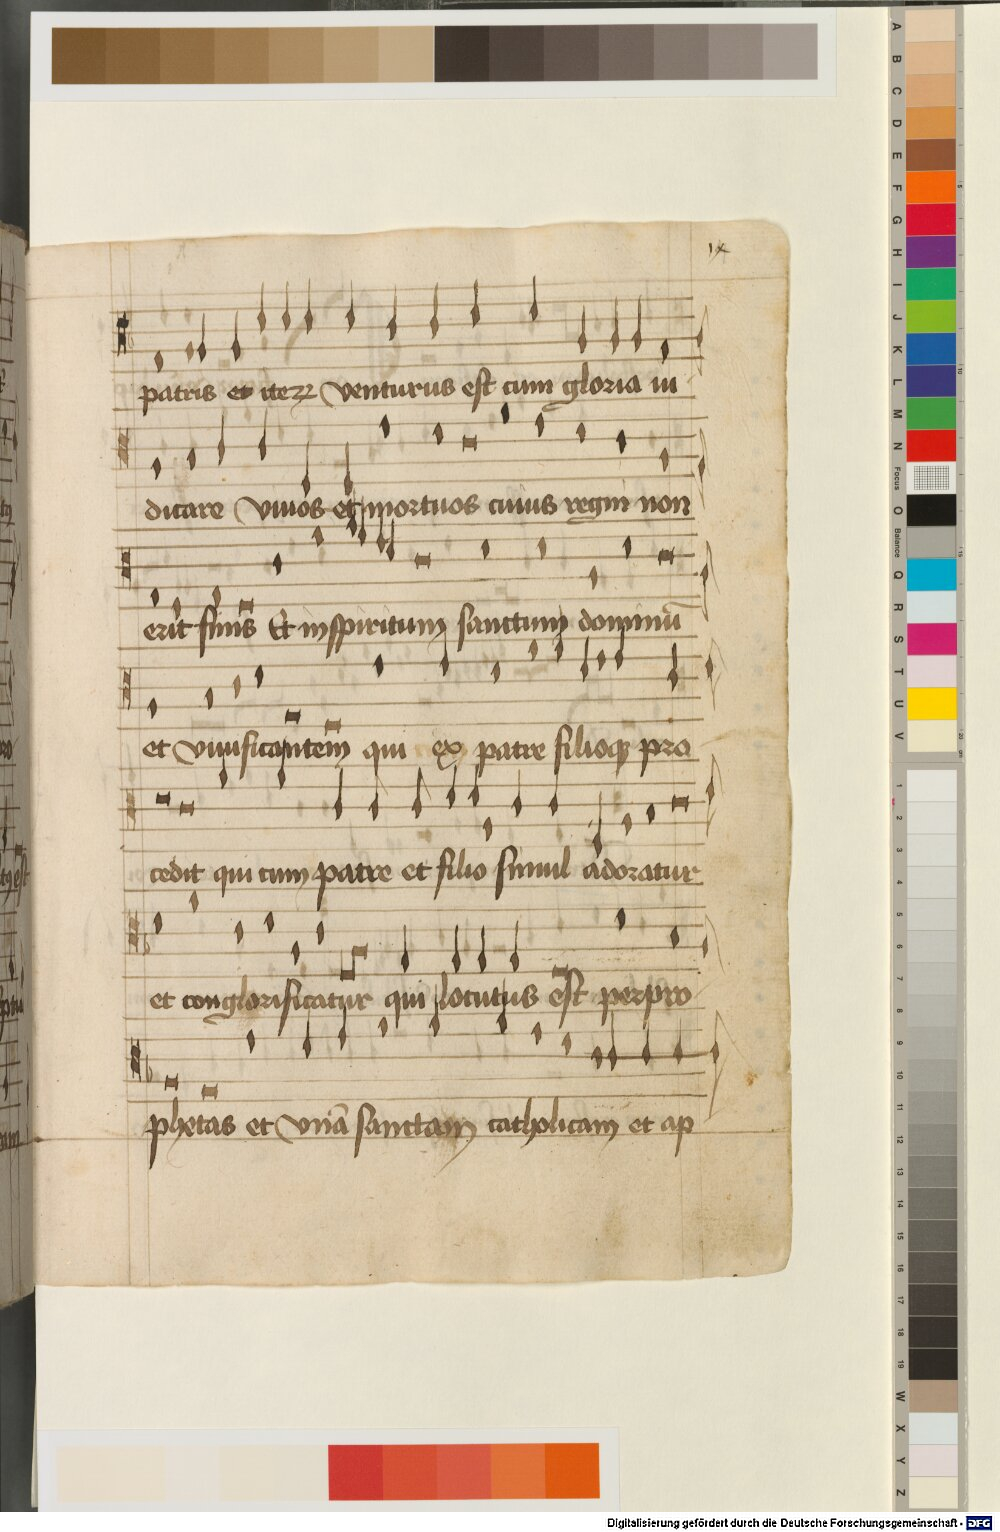 ix
patris et iteꝝ venturus est cum gloria iu
dicare vivos et mortuos cuius regni non
erit finis Et in spiritum sanctum dominū
et vivificantem qui ex patre filioqꝫ pro
cedit qui cum patre et filio simul adoratur
et conglorificatur qui locutus est per pro
phetas et vnā sanctam catholicam et ap
A
B
C
D
E
F
G
H
I
J
K
L
M
N
Focus
O
Balance
Q
R
S
T
U
V
1
2
3
4
5
6
7
8
9
10
11
12
13
14
15
16
17
18
19
W
X
Y
Z
Digitalisierung gefördert durch die Deutsche Forschungsgemeinschaft - DFG